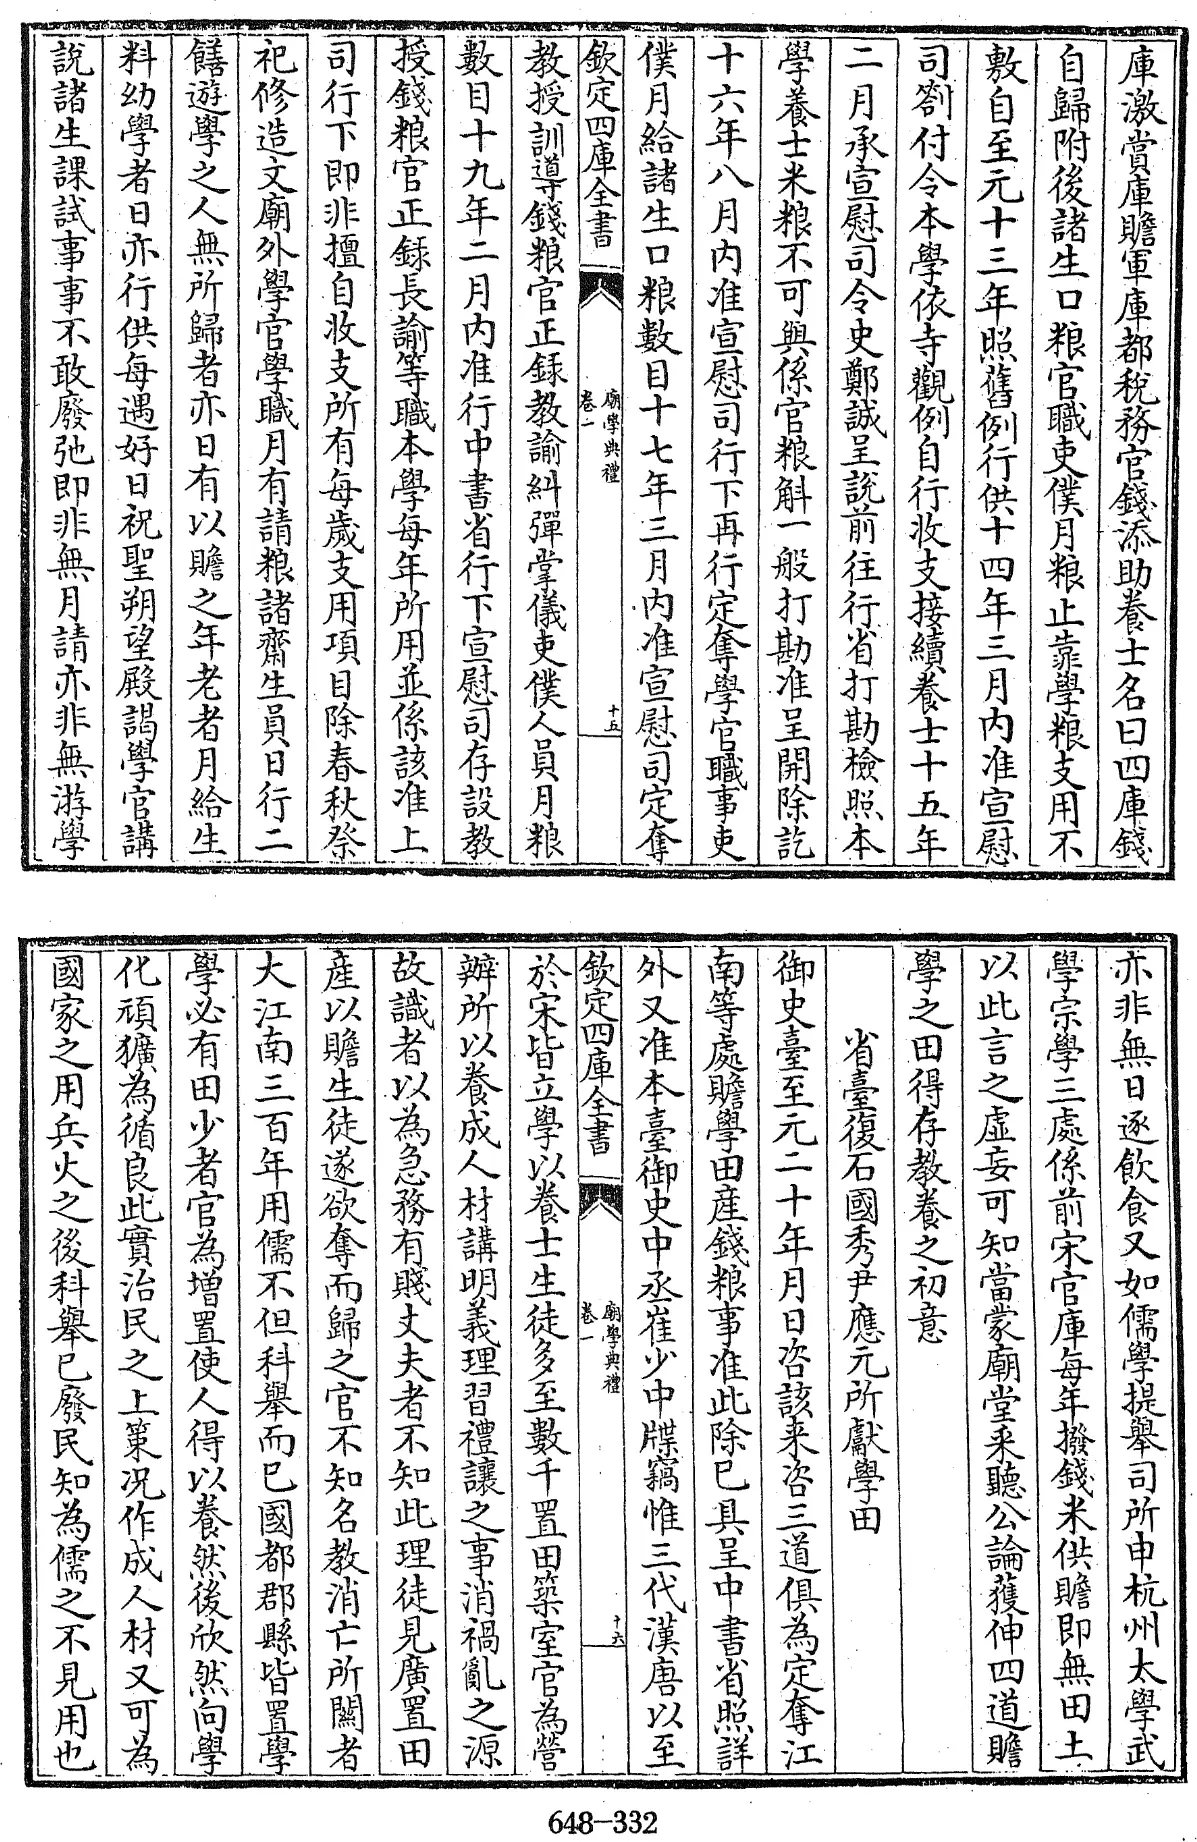 庫激賞庫贍軍庫都稅務官錢添助養士名曰四庫錢
自歸附後諸生口粮官職吏僕月粮止靠學粮支用不
敷自至元十三年照舊例行供十四年三月內准宣慰
司劄付令本學依寺觀例自行收支接續養士十五年
二月承宣慰司令史鄭誠呈說前往行省打勘檢照本
學養士米粮不可與係官粮斛一般打勘准呈開除訖
十六年八月內准宣慰司行下再行定奪學官職事吏
僕月給諸生口粮數目十七年三月內准宣慰司定奪
欽定四庫全書
廟學典禮
卷一
十五
教授訓導錢粮官正錄教諭糾彈掌儀吏僕人員月粮
數目十九年二月內准行中書省行下宣慰司存設教
授錢粮官正錄長諭等職本學每年所用並係該准上
司行下即非擅自收支所有每歲支用項目除春秋祭
祀修造文廟外學官學職月有請粮諸齋生員日行二
饍遊學之人無所歸者亦日有以贍之年老者月給生
料幼學者日亦行供每遇好日祝聖朔望殿謁學官講
說諸生課試事事不敢廢弛即非無月請亦非無游學
亦非無日逐飲食又如儒學提舉司所申杭州太學武
學宗學三處係前宋官庫每年撥錢米供贍即無田土
以此言之虛妄可知當蒙廟堂采聽公論獲伸四道贍
學之田得存教養之初意
省臺復石國秀尹應元所獻學田
御史臺至元二十年月日咨該来咨三道俱為定奪江
南等處贍學田產錢粮事准此除已具呈中書省照詳
外又准本臺御史中丞崔少中牒竊惟三代漢唐以至
欽定四庫全書
廟學典禮
卷一
十六
於宋皆立學以養士生徒多至數千置田築室官為營
辦所以養成人材講明義理習禮讓之事消禍亂之源
故識者以為急務有賤丈夫者不知此理徒見廣置田
產以贍生徒遂欲奪而歸之官不知名教消亡所關者
大江南三百年用儒不但科舉而已國都郡縣皆置學
學必有田少者官為增置使人得以養然後欣然向學
化頑獷為循良此實治民之上策况作成人材又可為
國家之用兵火之後科舉已廢民知為儒之不見用也
648-332